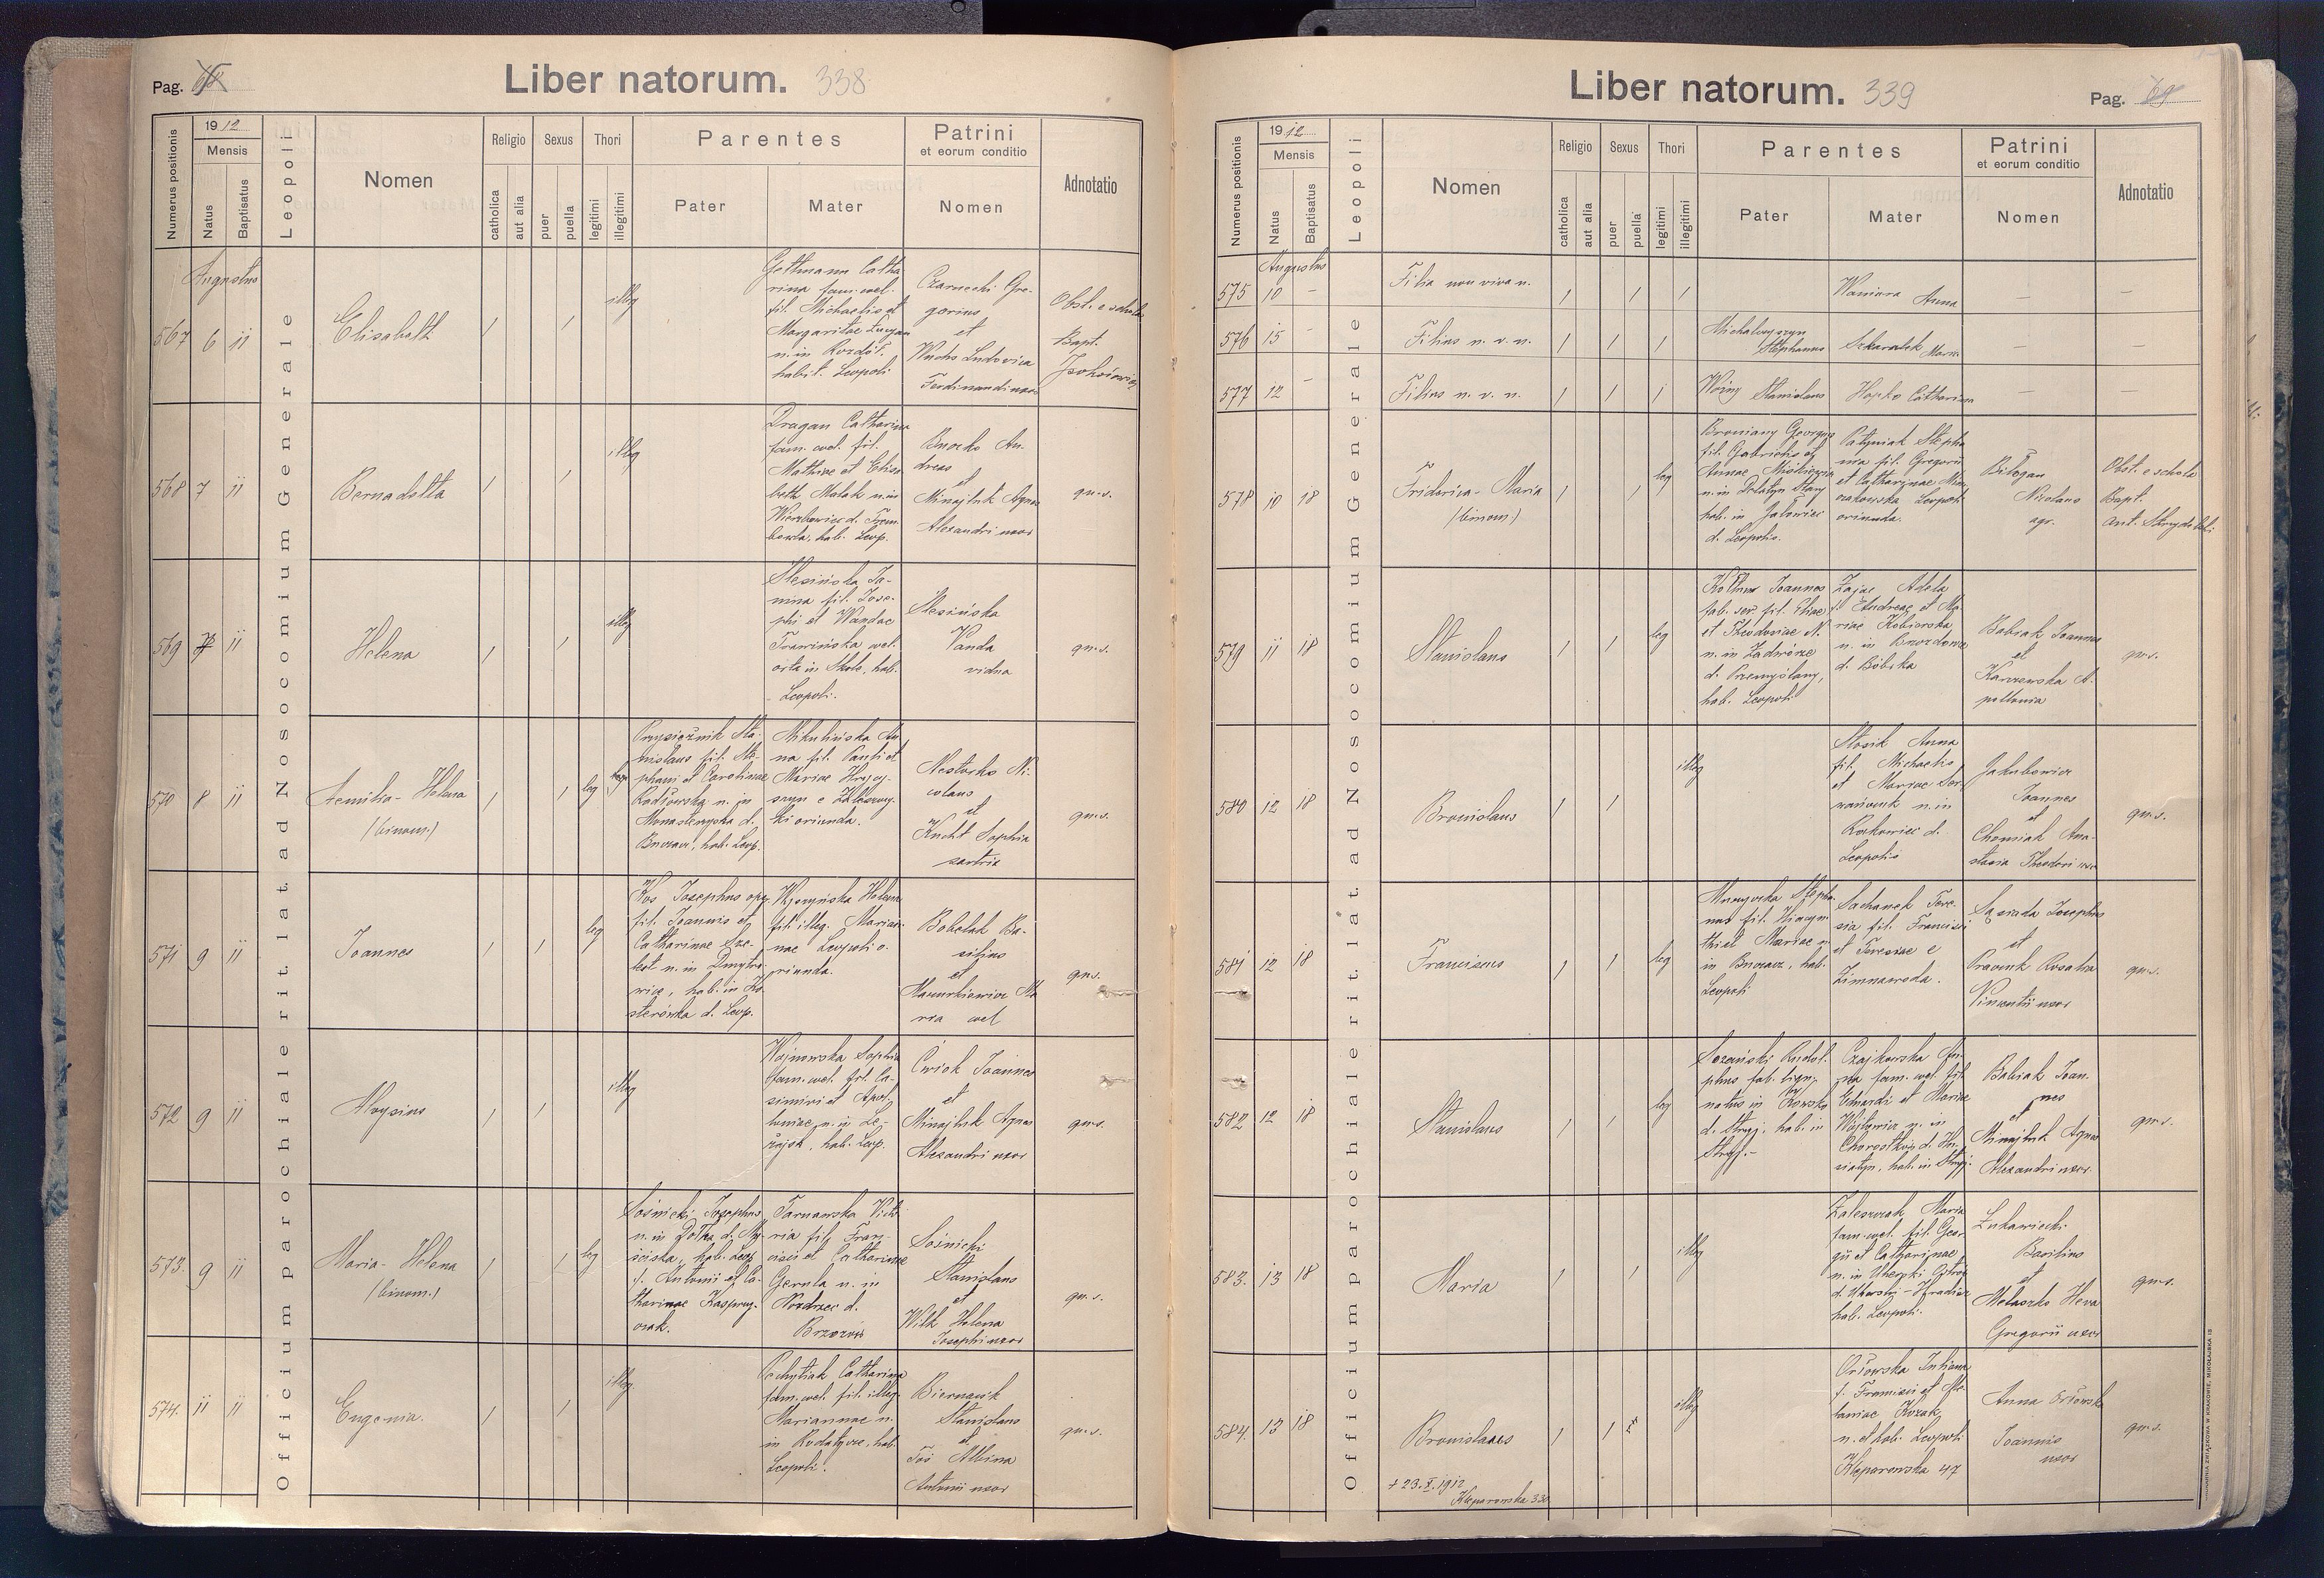 Pag.
Liber natorum. 338
Numerus positionis
1912
Mensis
Natus
Baptisatus
Leopoli
Nomen
Religio
catholica
aut alia
Sexus
puer
puella
Thori
legitimi
illegitimi
Parentes
Pater
Mater
Patrini
et eorum conditio
Nomen
Adnotatio
Officium parochiale rit. lat. ad Nosocomium Generale
Augustus
567 6 11
Elisabeth
illeg
Gottmann Catha
rina fam. vel.
fil. Michaelis et
Margaritae
n. in Rozdół
habit. Leopoli
Czarnecki Gre-
gorius
et
Wachs Ludovica
Ferdinandi uxor
Obst. e schola
Bapt.
568 7 11
Bernadetta
illeg
Dragan Catharina
fam. vel. fil.
Mathiae et Elisa
beth Malak n. in
Wierzbowiec d. Trem
bowla, hab. Leop.
Buczko An-
dreas
et
Minajluk Agnes
Alexandri uxor
qu. s.
569 7 11
Helena
illeg
Slesińska Ja-
nina fil. Jose-
phi et Wandae
vel.
orta in Skole, hab.
Leopoli.
Slesińska
Vanda
vidua
qu. s.
570 8 11
Aemilia-Helena
(binom.)
leg
Przysiężnik Sta-
nislaus fil. Ste-
phani et Carolinae
n. in
Monasterzyska d.
Buczacz, hab. Leop.
Mikulińska An
na fil. Pauli et
Mariae Hrycy-
szyn e Zaleszczy-
ki oriunda.
Nestorko Ni-
colaus
et
Kncht Sophia
sartrix
qu. s.
571 9 11
Joannes
leg
Kos Josephus opf.
fil. Joannis et
Catharinae Sze-
lest n. in Dmytro-
wice, hab. in Ko-
sterówka d. Leop.
Helena
fil. illeg. Marian-
nae Leopoli o-
riunda.
Bobelak Ba-
silius
et
Mazurkiewicz Ma
ria vel
qu. s.
572 9 11
Aloysius
illeg
Wojnowska Sophia
fam. vel. fil. Ca-
simiri et Apol-
loniae, n. in Le-
żajsk, hab. Leop.
Ćwiok Joannes
et
Minajluk Agnes
Alexandri uxor
qu. s.
573. 9 11
Maria-Helena
(binom.)
leg
Sośnicki Josephus
n. in d. Mo-
ściska, hab. Leop
f. Antonii et Ca-
tharinae Kasprzy-
czak.
Tarnawska Victo
ria fil. Fran-
cisci et Catharinae
Gerula n. in
Nozdrzec d.
Brzozów
Sośnicki
Stanislaus
et
Wilk Helena
Josephi uxor
qu. s.
574. 11 11
Eugenia.
illeg
Catharina
fam. vel. fil. illeg.
Mariannae n.
in Rodatycze, hab.
Leopoli.
Biernacik
Stanislaus
et
Toś Albina
Antonii uxor
qu. s.
Liber natorum. 339
Pag.
Numerus positionis
1912
Mensis
Natus
Baptisatus
Leopoli
Nomen
Religio
catholica
aut alia
Sexus
puer
puella
Thori
legitimi
illegitimi
Parentes
Pater
Mater
Patrini
et eorum conditio
Nomen
Adnotatio
Officium parochiale rit. lat. ad Nosocomium Generale
Augustus
575 10 –
Filia non viva n.
Waniura Anna
576 15 –
Filius n. v. n.
Michalczyszyn
Stephanus
Szkaratek Maria
577 12 –
Filius n. v. n.
Woźny Stanislaus
Hopko Catharina
578 10 18
Friderica-Maria
(binom)
leg
Broniany Georgius
fil. Gabrielis et
Annae Miśkiewicz
n. in Dolatyn Stary
hab. in Jałowiec
d. Leopolis.
Patyniak Stepha
nia fil. Gregorii
et Catharinae
Leopoli
oriunda.
Bilogan
Nicolaus
agr.
Obst. e schola
Bapt.
579 11 18
Stanislaus
leg
Joannes
fab. ser. fil. Eliae
et Theodosiae N.
n. in Zadwórze
d. Przemyślany,
hab. Leopoli
Zając Adela
f. Andreae et Ma-
riae Kobierska
n. in Brzozdowce
d. Bóbrka
Babiak Joannes
et
Karczewska A-
pollonia
qu. s.
580 12 18
Bronislaus
illeg
Stosik Anna
fil. Michaelis
et Mariae
n. in
Rzakowiec d.
Leopolis
Jakubowicz
Joannes
et
Chomiak Ana-
stasia Theodori uxor
qu. s.
581 12 18
Franciscus
leg
Stepha-
nus fil. Hiacyn
thi et Mariae n.
in Buczacz, hab.
Leopoli
Sachanek Tere-
sia fil. Francisci
et Teresiae e
Zimnawoda.
Sąsiada Josephus
et
Prawuk Rosalia
Vincentii uxor
qu. s.
582 12 18
Stanislaus
leg
Rudol-
phus fab. lign.
natus in
d. Stryj, hab. in
Stryj.–
Czajkowska An-
na fam. vel. fil.
Eduardi et Mariae
Wójtowicz n. in
Chorostków d. Hu-
siatyn, hab. in Stryj.
Babiak Joan-
nes
et
Minajluk Agnes
Alexandri uxor.
qu. s.
583. 13 18
Maria
illeg
Zaleszczak Maria
fam. vel. fil. Geor
gii et Catharinae
n. in
d. – Hradisz
hab. Leopoli.
Łukawiecki
Basilius
et
Melaszko Heva
Gregorii uxor
qu. s.
584. 13 18
Bronislaus
illeg
Orłowska Juliana
f. Francisci et Me-
laniae Kozak
n. et hab. Leopoli
Kleparowska 47
Anna Orłowska
Joannis
uxor
qu. s.
+ 23.X.1912
Kleparowska 330